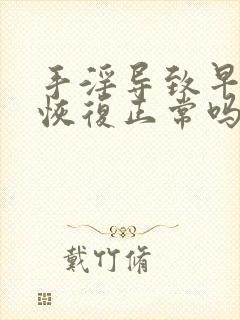 手淫导致早
恢復正常吗
戴竹脩